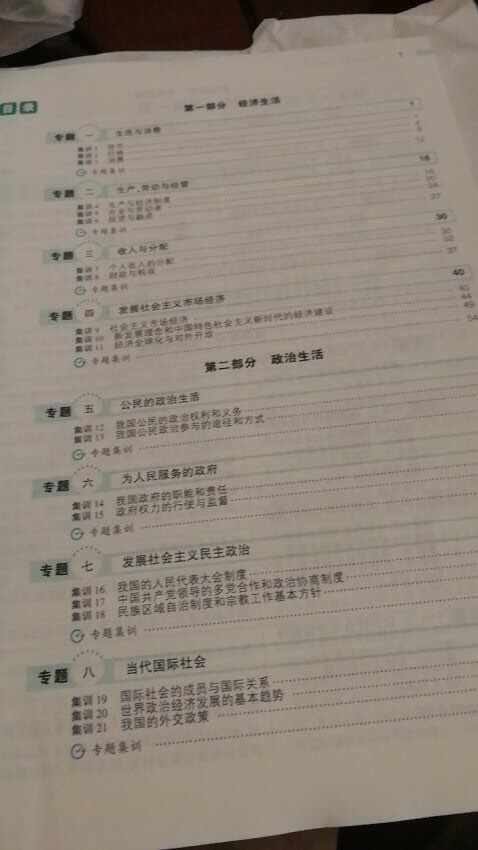 目录
第一部分 经济生活
专题 一 生活与消费 1
集训1 货币 1
集训2 价格 4
集训3 消费 8
专题集训 12
专题 二 生产、劳动与经营 16
集训4 生产与经济制度 16
集训5 企业与劳动者 20
集训6 投资与融资 24
专题集训 27
专题 三 收入与分配 30
集训7 个人收入的分配 30
集训8 财政与税收 32
专题集训 37
专题 四 发展社会主义市场经济 40
集训9 社会主义市场经济 40
集训10 新发展理念和中国特色社会主义新时代的经济建设 44
集训11 经济全球化与对外开放 49
专题集训 54
第二部分 政治生活
专题 五 公民的政治生活
集训12 我国公民的政治权利和义务
集训13 我国公民政治参与的途径和方式
专题集训
专题 六 为人民服务的政府
集训14 我国政府的职能和责任
集训15 政府权力的行使与监督
专题集训
专题 七 发展社会主义民主政治
集训16 我国的人民代表大会制度
集训17 中国共产党领导的多党合作和政治协商制度
集训18 民族区域自治制度和宗教工作基本方针
专题集训
专题 八 当代国际社会
集训19 国际社会的成员与国际关系
集训20 世界政治经济发展的基本趋势
集训21 我国的外交政策
专题集训